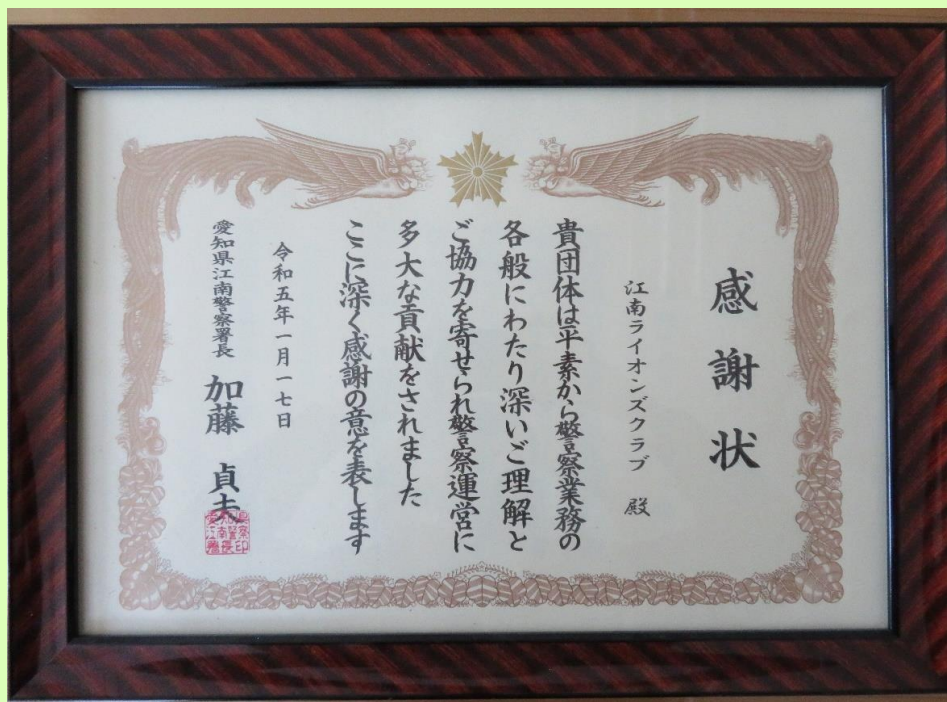 感謝状
江南ライオンズクラブ 殿
貴団体は平素から警察業務の
各般にわたり深いご理解と
ご協力を寄せられ警察運営に
多大な貢献をされました
ここに深く感謝の意を表します
令和五年一月一七日
愛知県江南警察署長 加藤 貞夫